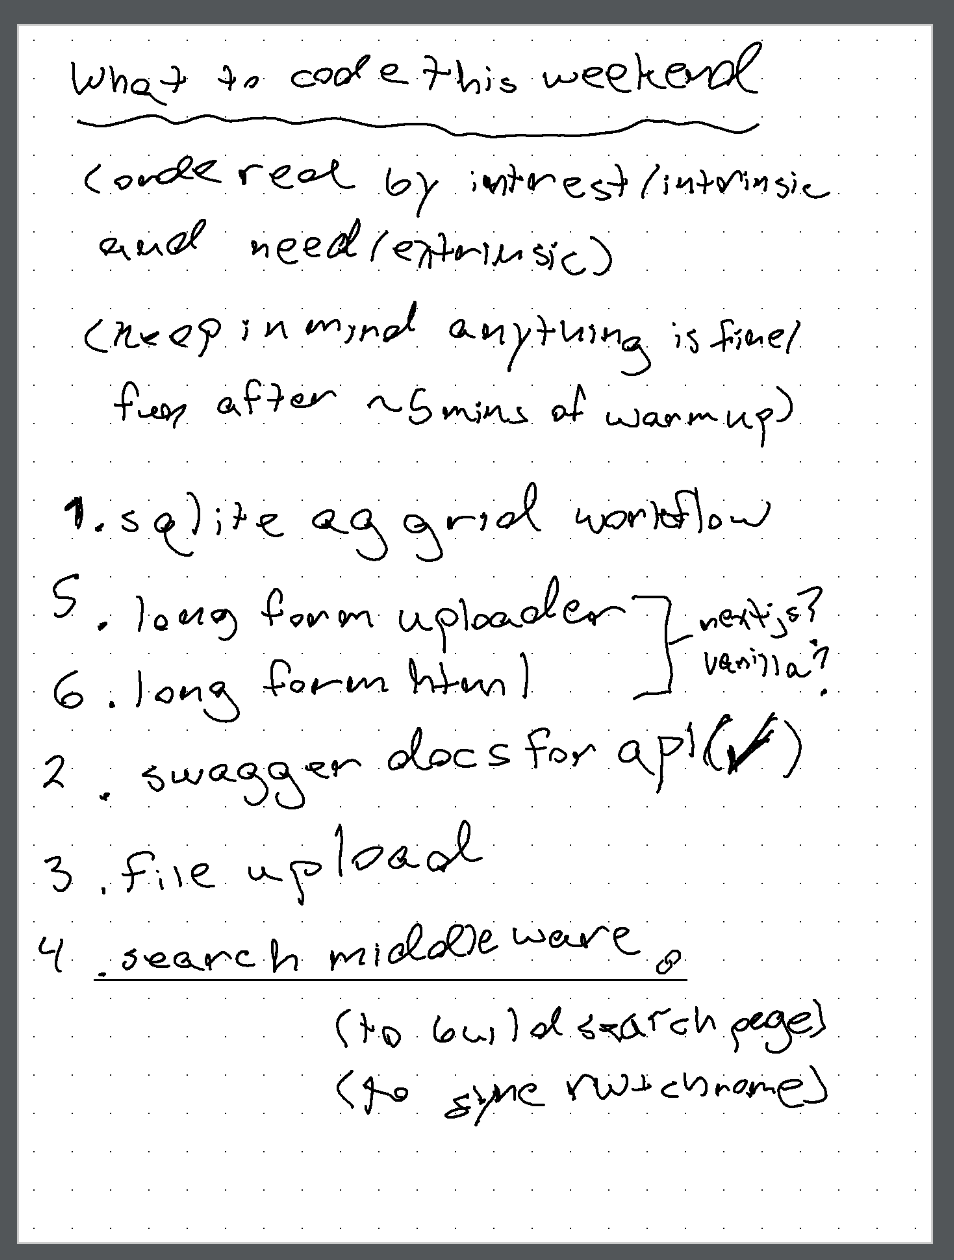 What to code this weekend
(ordered by interest/intrinsic
and need/extrinsic)
(keep in mind anything is fine/
fun after ~5mins of warmup)
1. sqlite ag grid workflow
5. long form uploader
nextjs?
6. long form html
vanilla?
2. swagger docs for api (✓)
3. file upload
4. search middleware
(to build search page)
(to sync rw+chrome)